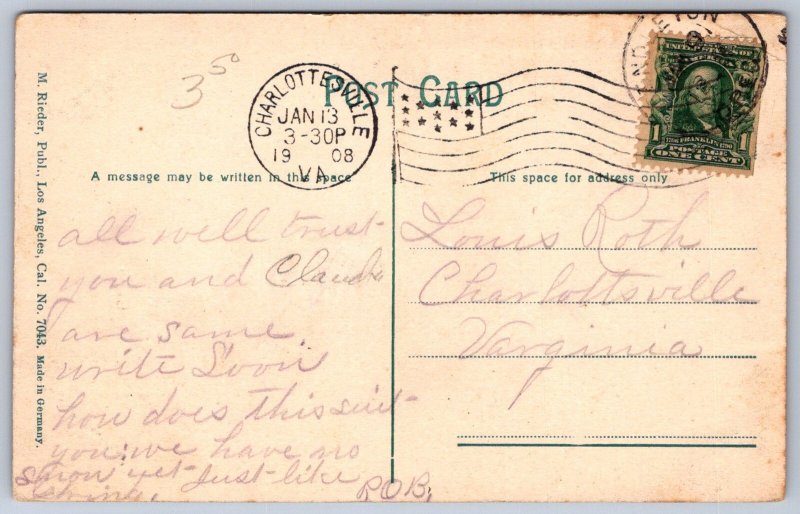 3 50
POST CARD
CHARLOTTESVILLE
JAN 13
3-30P
19 08
VA.
UNITED STATES OF AMERICA
1
1706 FRANKLIN 1790
POSTAGE
ONE CENT
A message may be written in this space
This space for address only
all well trust
you and Claude
are same.
write Soon
how does this suit
you. we have no
snow yet just like
spring.
R.O.B.
Louis Roth
Charlottsville
Varginia
M. Rieder, Publ., Los Angeles, Cal. No. 7043. Made in Germany.